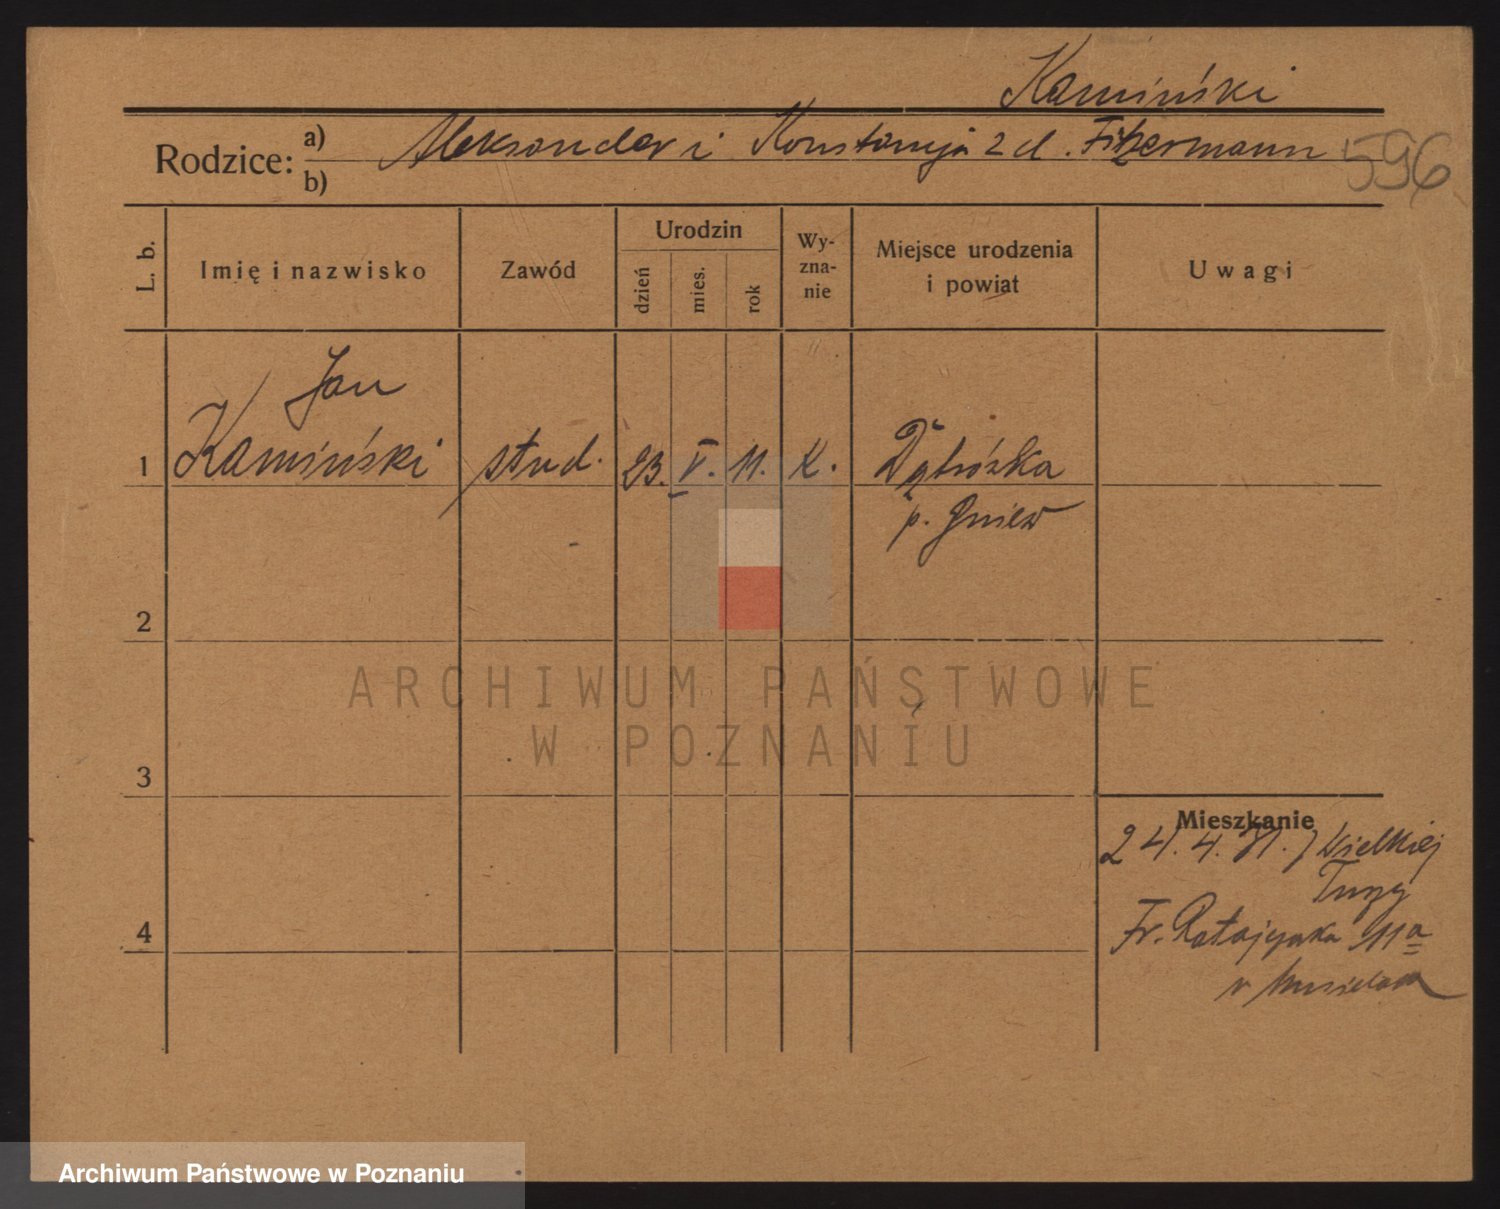 Kamiński
Rodzice: a) Aleksander i Konstancja z d. Fiszermann 596
b)
L. b. Imię i nazwisko Zawód Urodzin dzień mies. rok Wyznanie Miejsce urodzenia i powiat Uwagi
Jan
1 Kamiński stud. 23. V. 11. K. Dąbrówka
p. Gniew
2
ARCHIWUM PAŃSTWOWE
W POZNANIU
3
Mieszkanie
24. 4. 31. z Wielkiej
4
Fr. Ratajczaka 11a
Archiwum Państwowe w Poznaniu